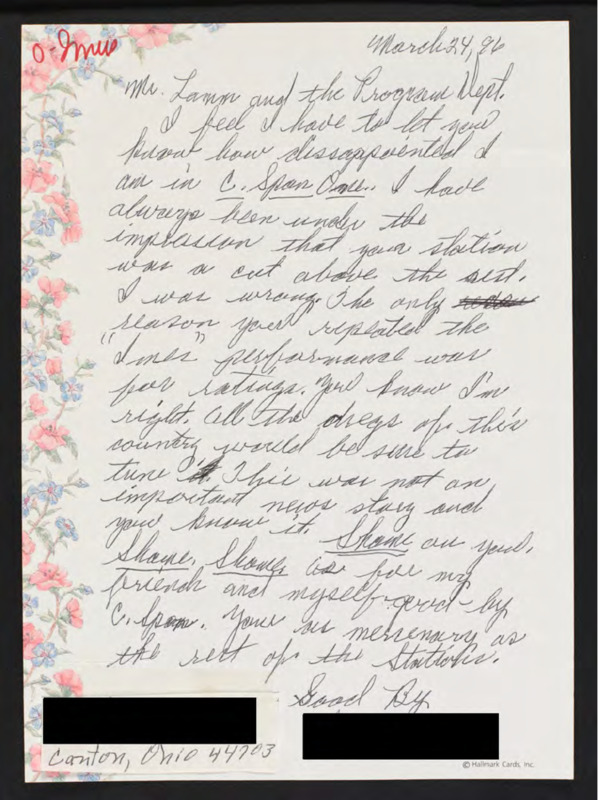 O-Imus
March 24, 96
Mr. Lamm and the Program Dept.
I feel I have to let you
know how dissappoented I
am in C. Span One. I have
always been under the
impression that your station
was a cut above the rest.
I was wrong. The only
reason you repeated the
"Imes" performance was
for ratings. You know I'm
right. All the dregs of this
country would be sure to
tune it. This was not an
important news story and
you know it. Shame on you.
Shame. Shame. as for my
friends and myself-good-by
C. Span. Your as mersenary as
the rest of the Stations.
Good By
Canton, Ohio 44703
© Hallmark Cards, Inc.